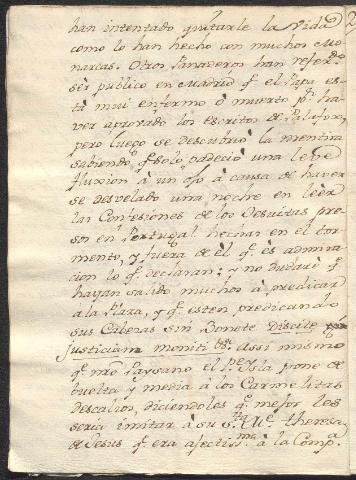 han intentado quitarle la Vida
como lo han hecho con muchos Mo-
narcas. Otros Panaderos han refer.do
sèr publico en Madrid q.e el Papa es-
tà mui enfermo ò muerto p.r ha-
ver aprovado los escritos de Palafox,
pero luego se descubriò la mentira
sabiendo q.e solo padeciò una leve
fluxion à un ojo à causa de haver
se desvelado una noche en leèr
las Confesiones de los Jesuitas pre-
sos en Portugal hechas en el tor-
mento, y fuera de èl q.e es admira-
cion lo q.e declaran; y no dudarè q.e
hayan salido muchos à predicar
a la Plaza, y q.e esten predicando
sus Cabezas sin Bonete Discite
justiciam moniti &c. Assi mismo
q.e nro Paysano el P.e Isla pone de
buelta y media à los Carmelitas
descalzos, diciendoles q.e mejor les
seria imitar à su S.ta M.e theresa
de Jesus q.e era afectis.ma à la Comp.a